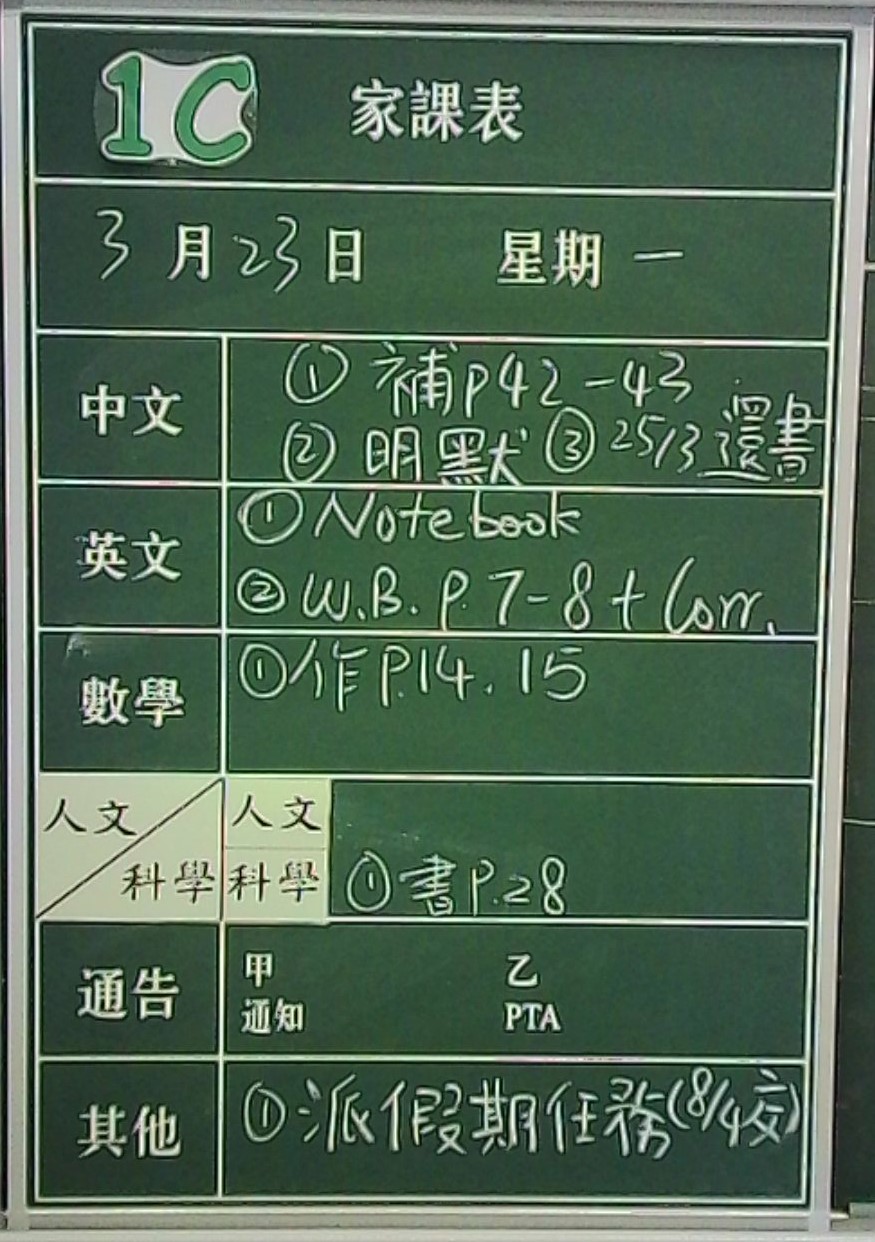 1C 家課表
3月23日 星期一
中文
① 補P42-43
② 明默 ③ 25/3 還書
英文
① Notebook
② W.B. P. 7-8 + Corr.
數學
① 作P.14. 15
人文 人文
科學 科學 ① 書P.28
通告
甲 乙
通知 PTA
其他
① 派假期任務(8/4交)